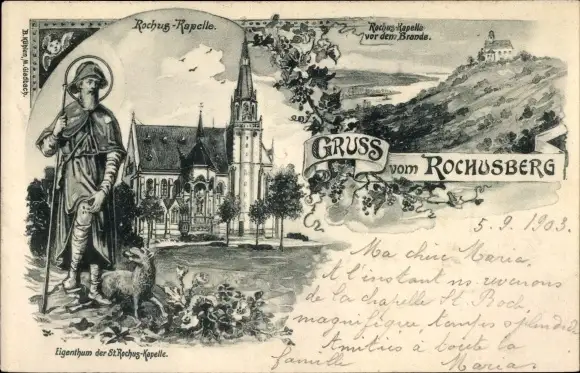 Rochus-Kapelle.
Rochus-Kapelle
vor dem Brande.
GRUSS
vom ROCHUSBERG
5.9.1903.
Ma chère Maria,
A l'instant ns revenons
de la chapelle St. Roch,
magnifique temps splendide
Amitiés à toute la
famille Marias
Eigenthum der St. Rochus-Kapelle.